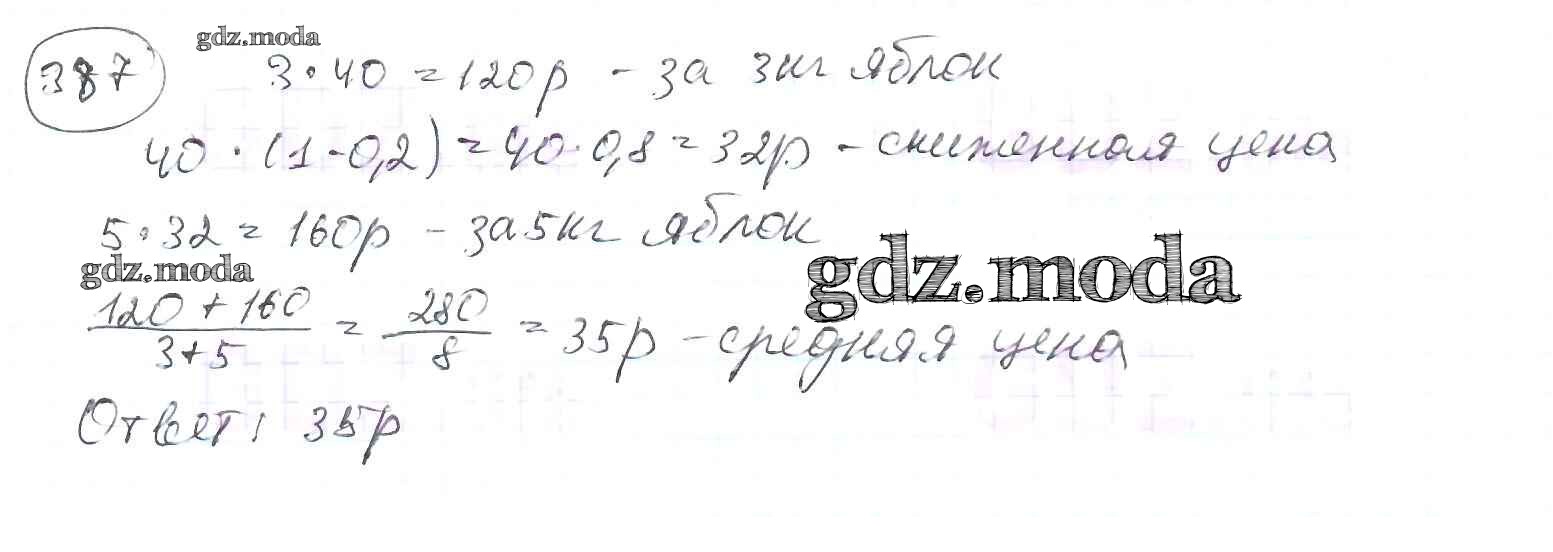 gdz.moda
387 3·40 = 120р - за 3кг яблок
40·(1-0,2) = 40·0,8 = 32р - сниженная цена
5·32 = 160р - за 5кг яблок
gdz.moda
gdz.moda
(120+160)/(3+5) = 280/8 = 35р - средняя цена
Ответ: 35р